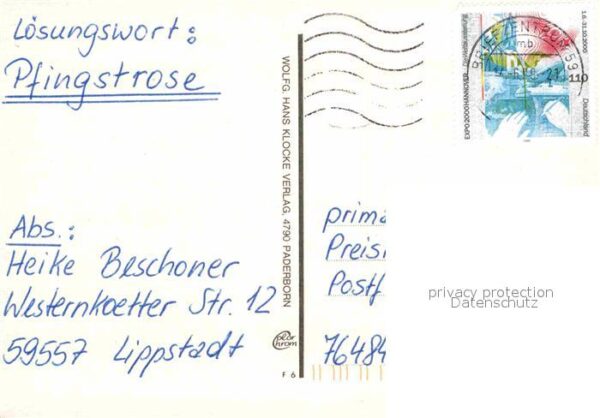 Lösungswort:
Pfingstrose
Abs.:
Heike Beschoner
Westernkoetter Str. 12
59557 Lippstadt
WOLFG. HANS KLOCKE VERLAG, 4790 PADERBORN
F 6
BRIEFZENTRUM 59
mb
110
Deutschland
1.6.-31.10.2000
EXPO2000HANNOVER
prima
Preis
Postf
76484
privacy protection
Datenschutz